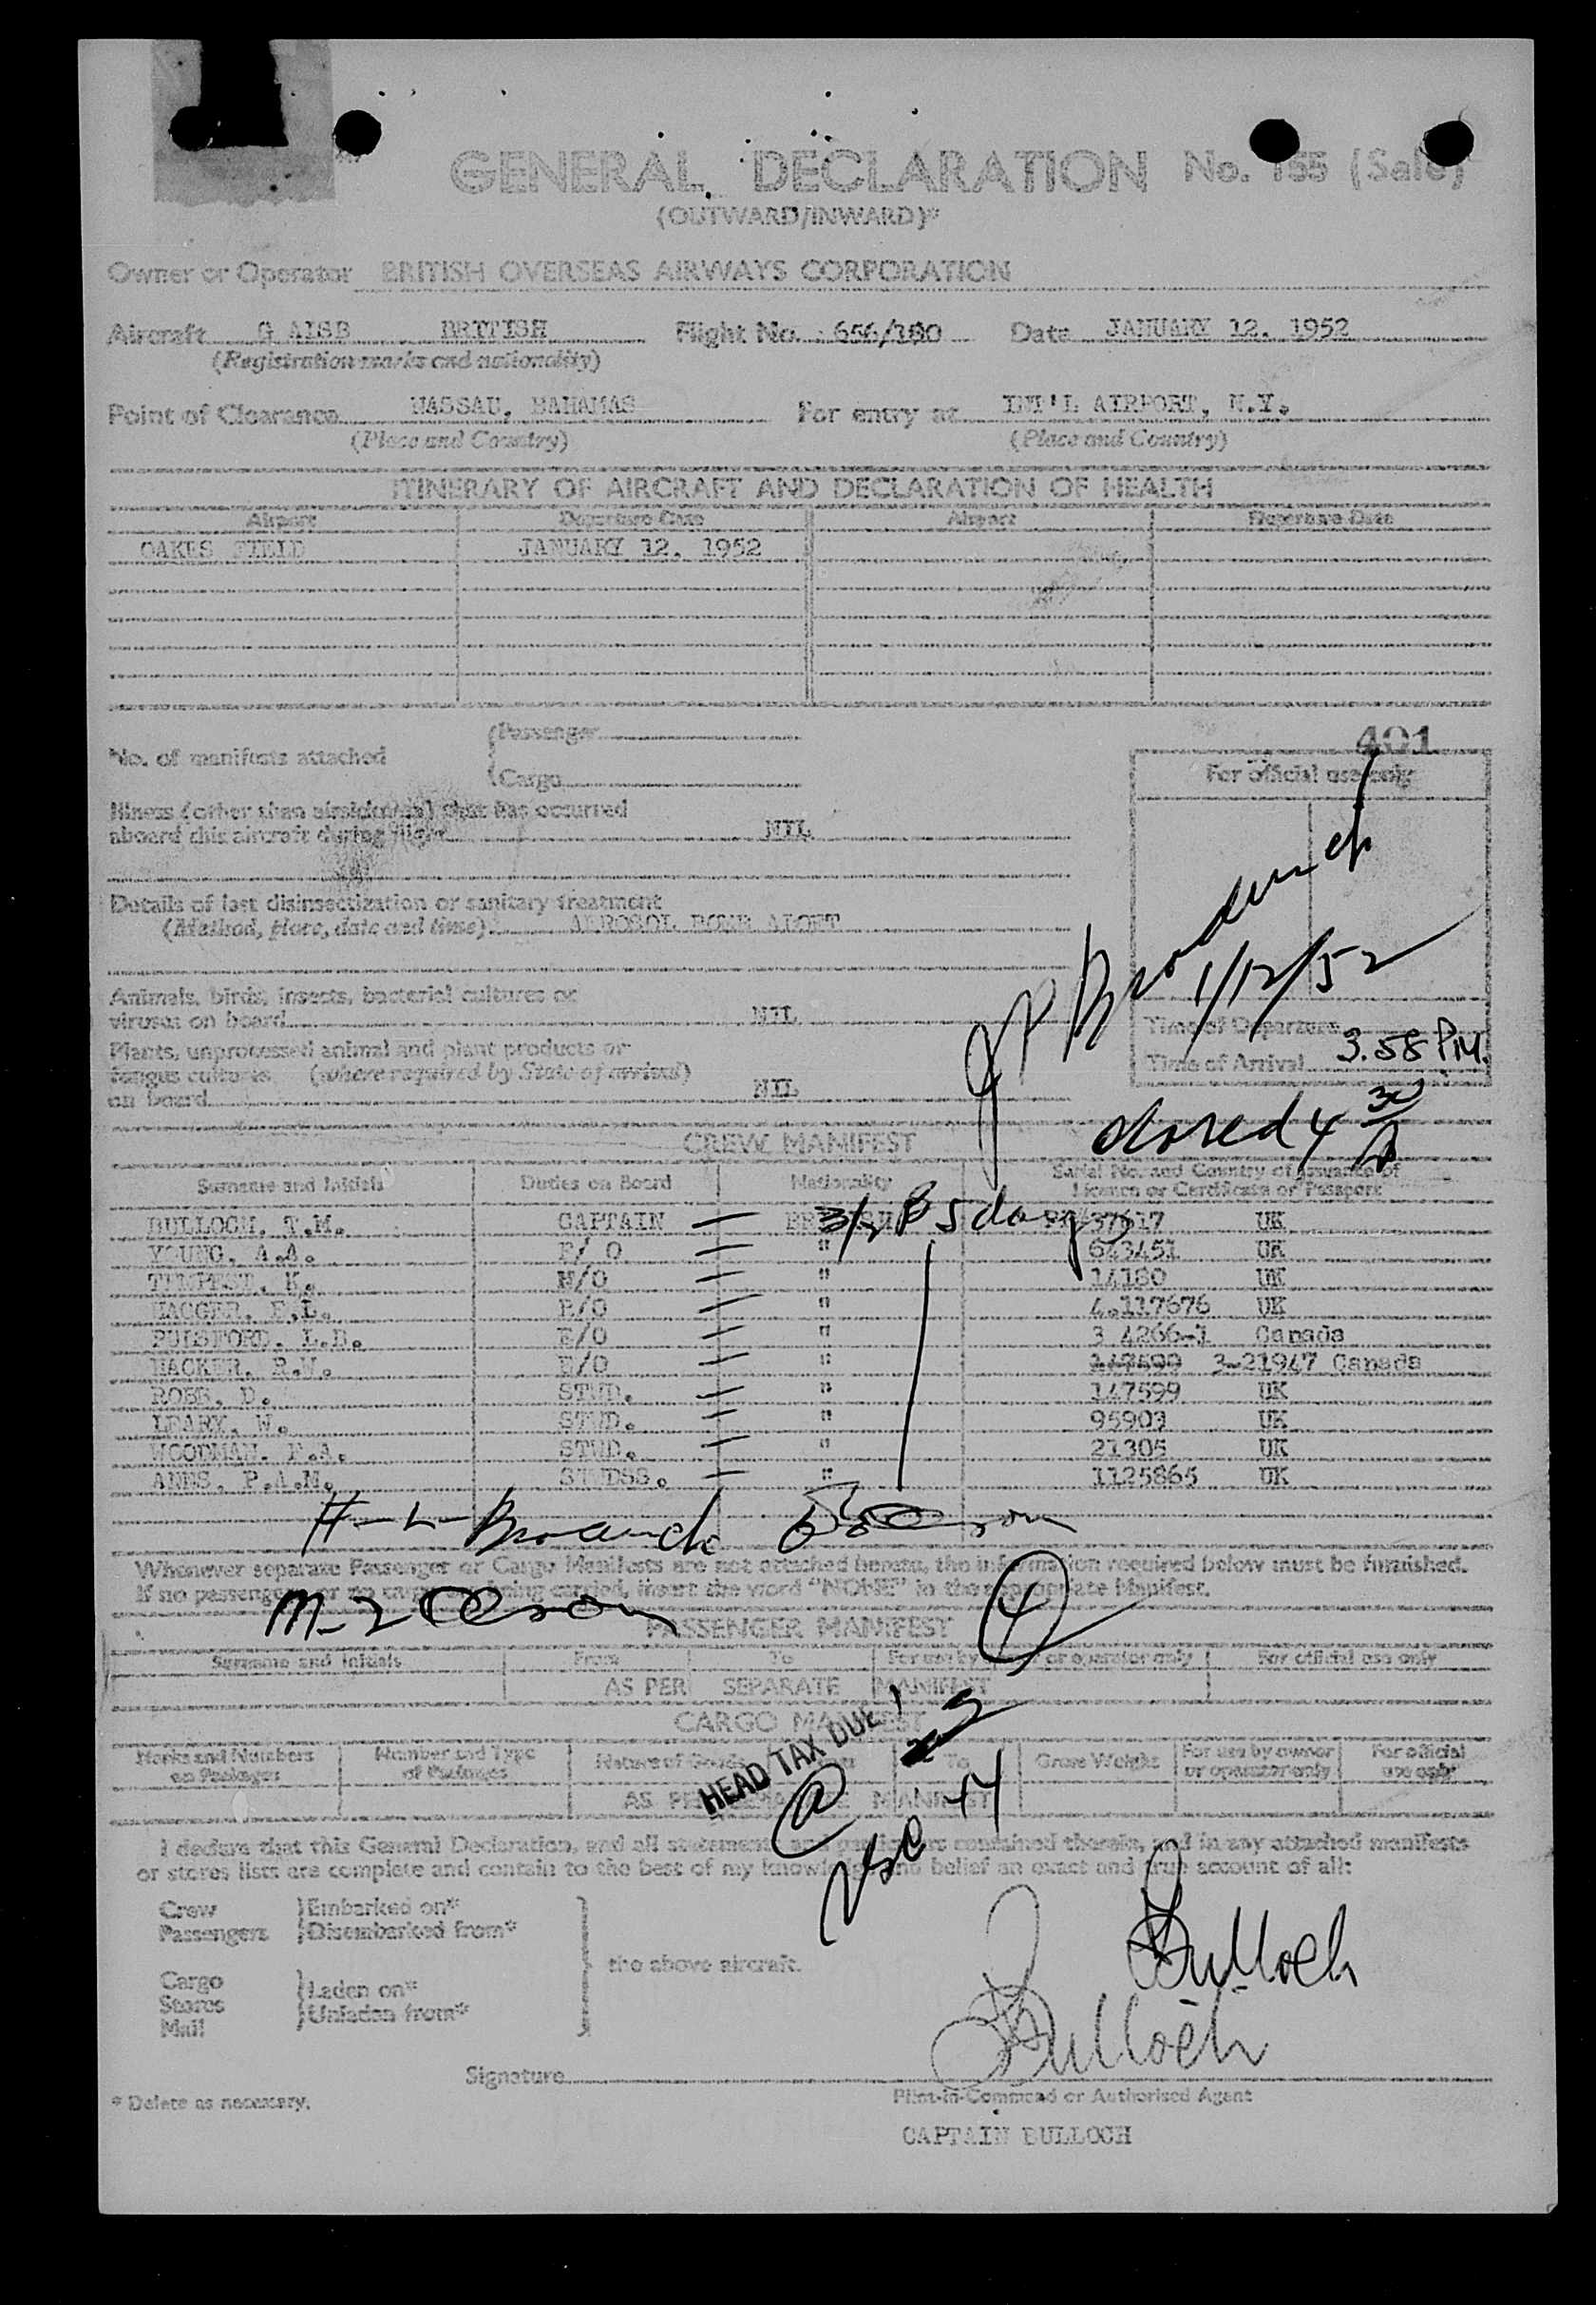 GENERAL DECLARATION No. 155 (Sale)
(OUTWARD/INWARD)*
Owner or Operator BRITISH OVERSEAS AIRWAYS CORPORATION
Aircraft BRITISH Flight No. 656/180 Date JANUARY 12. 1952
(Registration marks and nationality)
Point of Clearance NASSAU, BAHAMAS For entry at INT'L AIRPORT, N.Y.
(Place and Country) (Place and Country)
ITINERARY OF AIRCRAFT AND DECLARATION OF HEALTH
Airport Departure Date Airport Departure Date
OAKES FIELD JANUARY 12. 1952
401
No. of manifests attached
Passenger
Cargo
For official use only
Illness (other than airsickness) that has occurred
aboard this aircraft during flight NIL
Details of last disinsectization or sanitary treatment
(Method, place, date and time) AEROSOL BOMB ALOFT
1/12/52
Animals, birds, insects, bacterial cultures or
viruses on board NIL
Time of Departure
Time of Arrival 3.58 P.M.
Plants, unprocessed animal and plant products or
fungus cultures (where required by State of arrival)
on board NIL
CREW MANIFEST
Surname and Initials Duties on Board Nationality Serial No. and Country of issuance of
Licence or Certificate or Passport
BULLOCH, T.M. CAPTAIN 5 days 37617 UK
YOUNG, A.A. F/O " 643451 UK
TEMPEST, K. N/O " 14180 UK
R/O " 4.117676 UK
PULSFORD, L.B. E/O " 3 4266-1 Canada
HACKER, R.W. E/O " 147599 3-21947 Canada
ROBB, D. STWD. " 147599 UK
LEARY, W. STWD. " 95903 UK
WOODMAN, F.A. STWD. " 21305 UK
P.A.M. STWDSS. " 1125865 UK
Whenever separate Passenger or Cargo Manifests are not attached hereto, the information required below must be furnished.
If no passengers or no cargo are being carried, insert the word "NONE" in the appropriate Manifest.
PASSENGER MANIFEST
Surname and Initials From To For use by or operator only For official use only
AS PER SEPARATE MANIFEST
CARGO MANIFEST
HEAD TAX DUE
Marks and Numbers on Packages Number and Type of Packages Nature of Goods To Gross Weight For use by owner or operator only For official use only
AS PER SEPARATE MANIFEST
I declare that this General Declaration, and all statements and particulars contained therein, and in any attached manifests
or stores lists are complete and contain to the best of my knowledge and belief an exact and true account of all:
Crew Embarked on*
Passengers Disembarked from*
the above aircraft.
Cargo Laden on*
Stores Unladen from*
Mail
Bulloch
Bulloch
Signature
* Delete as necessary. Pilot-in-Command or Authorised Agent
CAPTAIN BULLOCH